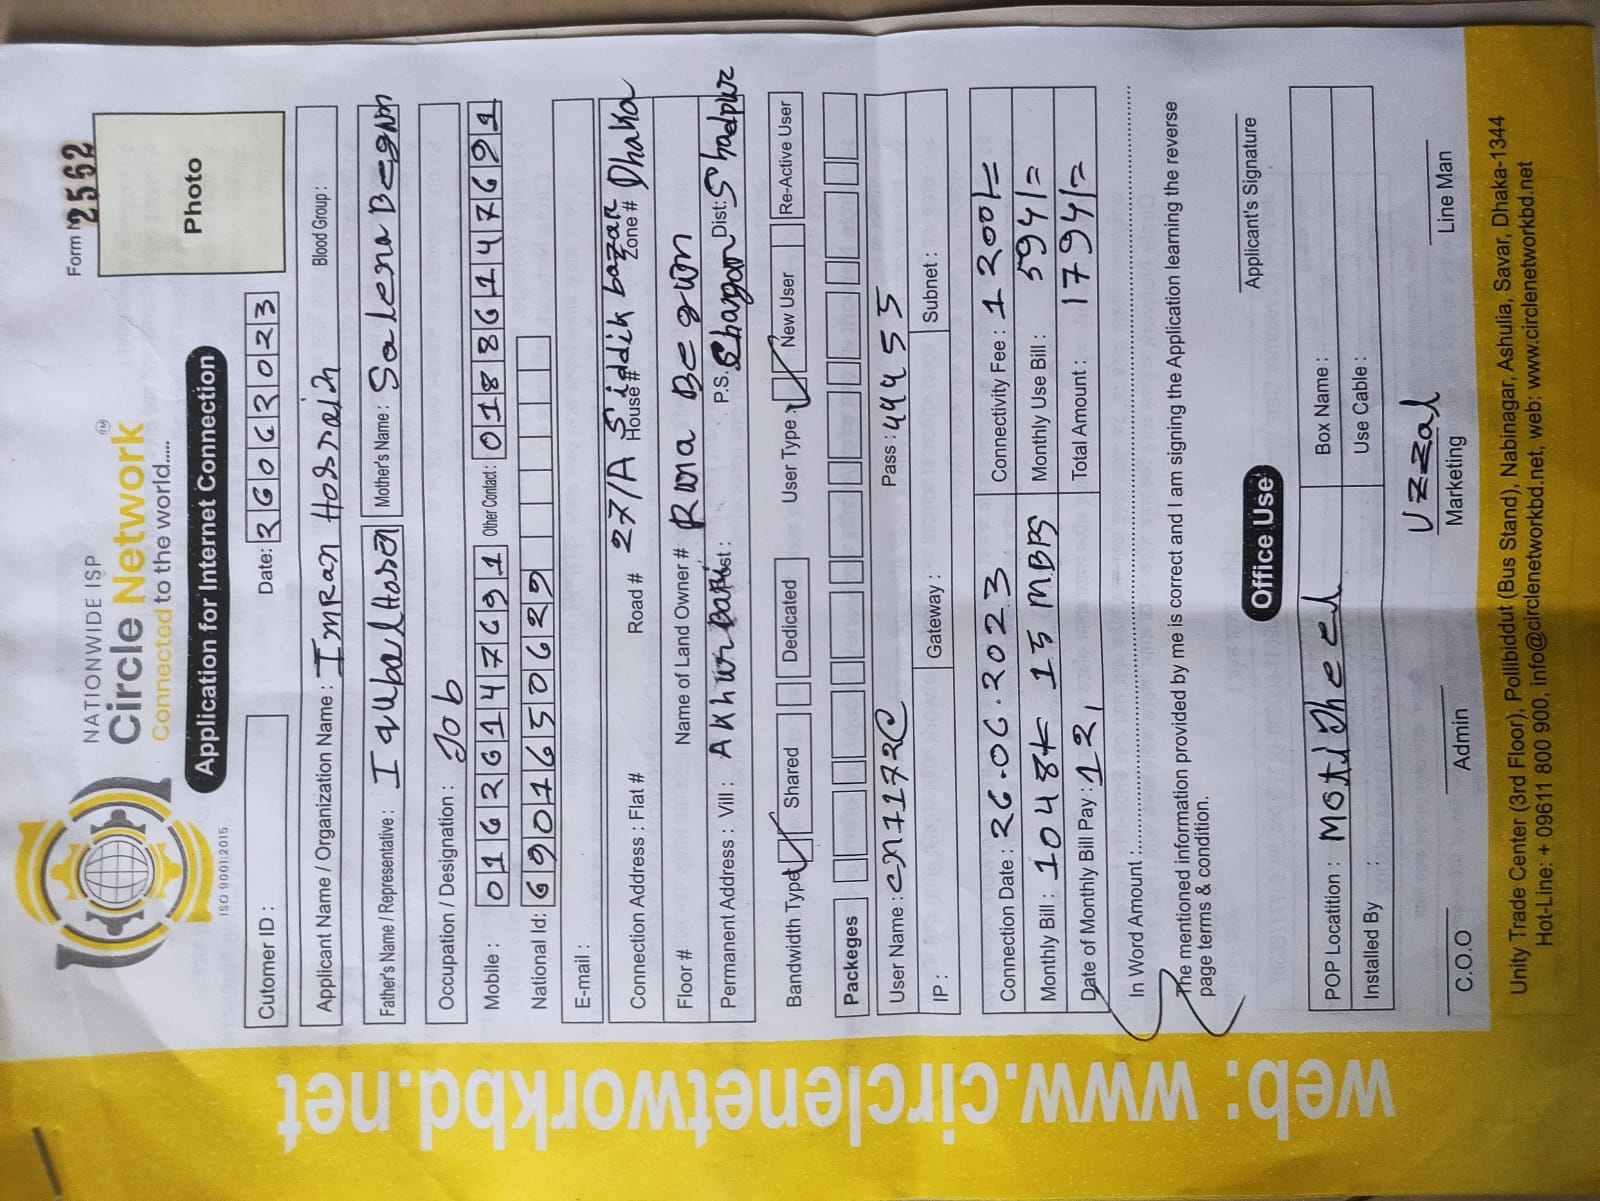 NATIONWIDE ISP
Circle Network TM
Connected to the world.....
ISO 9001:2015
Form N 2562
Photo
Application for Internet Connection
Cutomer ID :
Date: 26062023
Applicant Name / Organization Name : Imran Hossain Blood Group :
Father's Name / Representative : Iqubal Hosan Mother's Name : Salena Begum
Occupation / Designation : Job
Mobile : 01626147691 Other Contact: 01886147691
National Id: 6901650629
E-mail :
Connection Address : Flat # Road # 27/A Siddik bazar House # Zone # Dhaka
Floor # Name of Land Owner # Runa Begum
Permanent Address : Vill : Akhur Bari Post : P.S. Dist:
Bandwidth Type Shared Dedicated User Type New User Re-Active User
Packeges
User Name : Pass : 444455
IP : Gateway : Subnet :
Connection Date : 26.06.2023 Connectivity Fee : 1200/=
Monthly Bill : 1048/= 15 MBPS Monthly Use Bill : 594/=
Date of Monthly Bill Pay : 12, Total Amount : 1794/=
In Word Amount :
The mentioned information provided by me is correct and I am signing the Application learning the reverse
page terms & condition.
Applicant's Signature
Office Use
POP Locatition : Motijheel Box Name :
Installed By : Use Cable :
Uzzal
C.O.O Admin Marketing Line Man
Unity Trade Center (3rd Floor), Pollibiddut (Bus Stand), Nabinagar, Ashulia, Savar, Dhaka-1344
Hot-Line: + 09611 800 900, info@circlenetworkbd.net, web: www.circlenetworkbd.net
web: www.circlenetworkbd.net